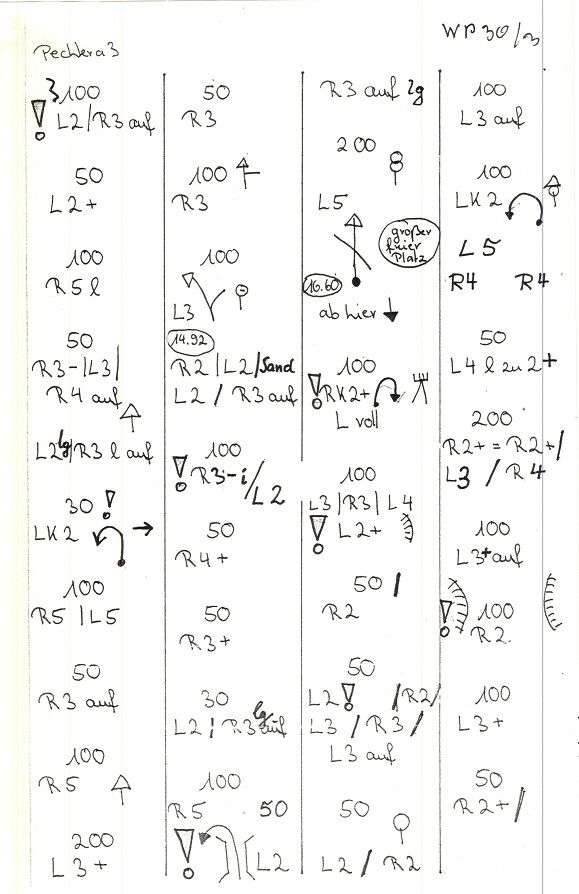 Pechtera3
WP 30/3
100
L2/R3 auf
50
L2+
100
R5 l
50
R3-/L3/
R4 auf
L2 lg/R3 l auf
30 !
LK2
100
R5 /L5
50
R3 auf
100
R5
200
L3+
50
R3
100
R3
100
L3
14.92
R2/L2/Sand
L2/R3 auf
100
! R3-i/
L2
50
R4+
50
R3+
30
L2/R3 lg auf
100
R5 50
! L2
R3 auf lg
200
L5
großer
freier
Platz
16.60
ab hier
100
! RK2+
L voll
100
L3/R3/L4
! L2+
50/
R2
50
L2! /R2/
L3/R3/
L3 auf
50
L2/R2
100
L3 auf
100
LK2
L5
R4 R4
50
L4 l zu 2+
200
R2+=R2+/
L3/R4
100
L3+auf
! 100
R2
100
L3+
50
R2+/